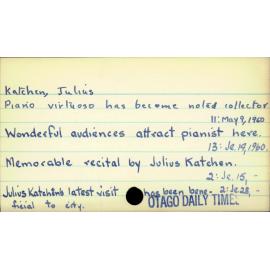 Katchen, Julius
Piano virtuoso has become noted collector
11: May 9, 1960
Wonderful audiences attract pianist here.
13: Je. 19, 1960.
Memorable recital by Julius Katchen.
2: Je. 15, -
Julius Katchen's latest visit has been bene- 2: Je. 28, -
ficial to city.
OTAGO DAILY TIMES